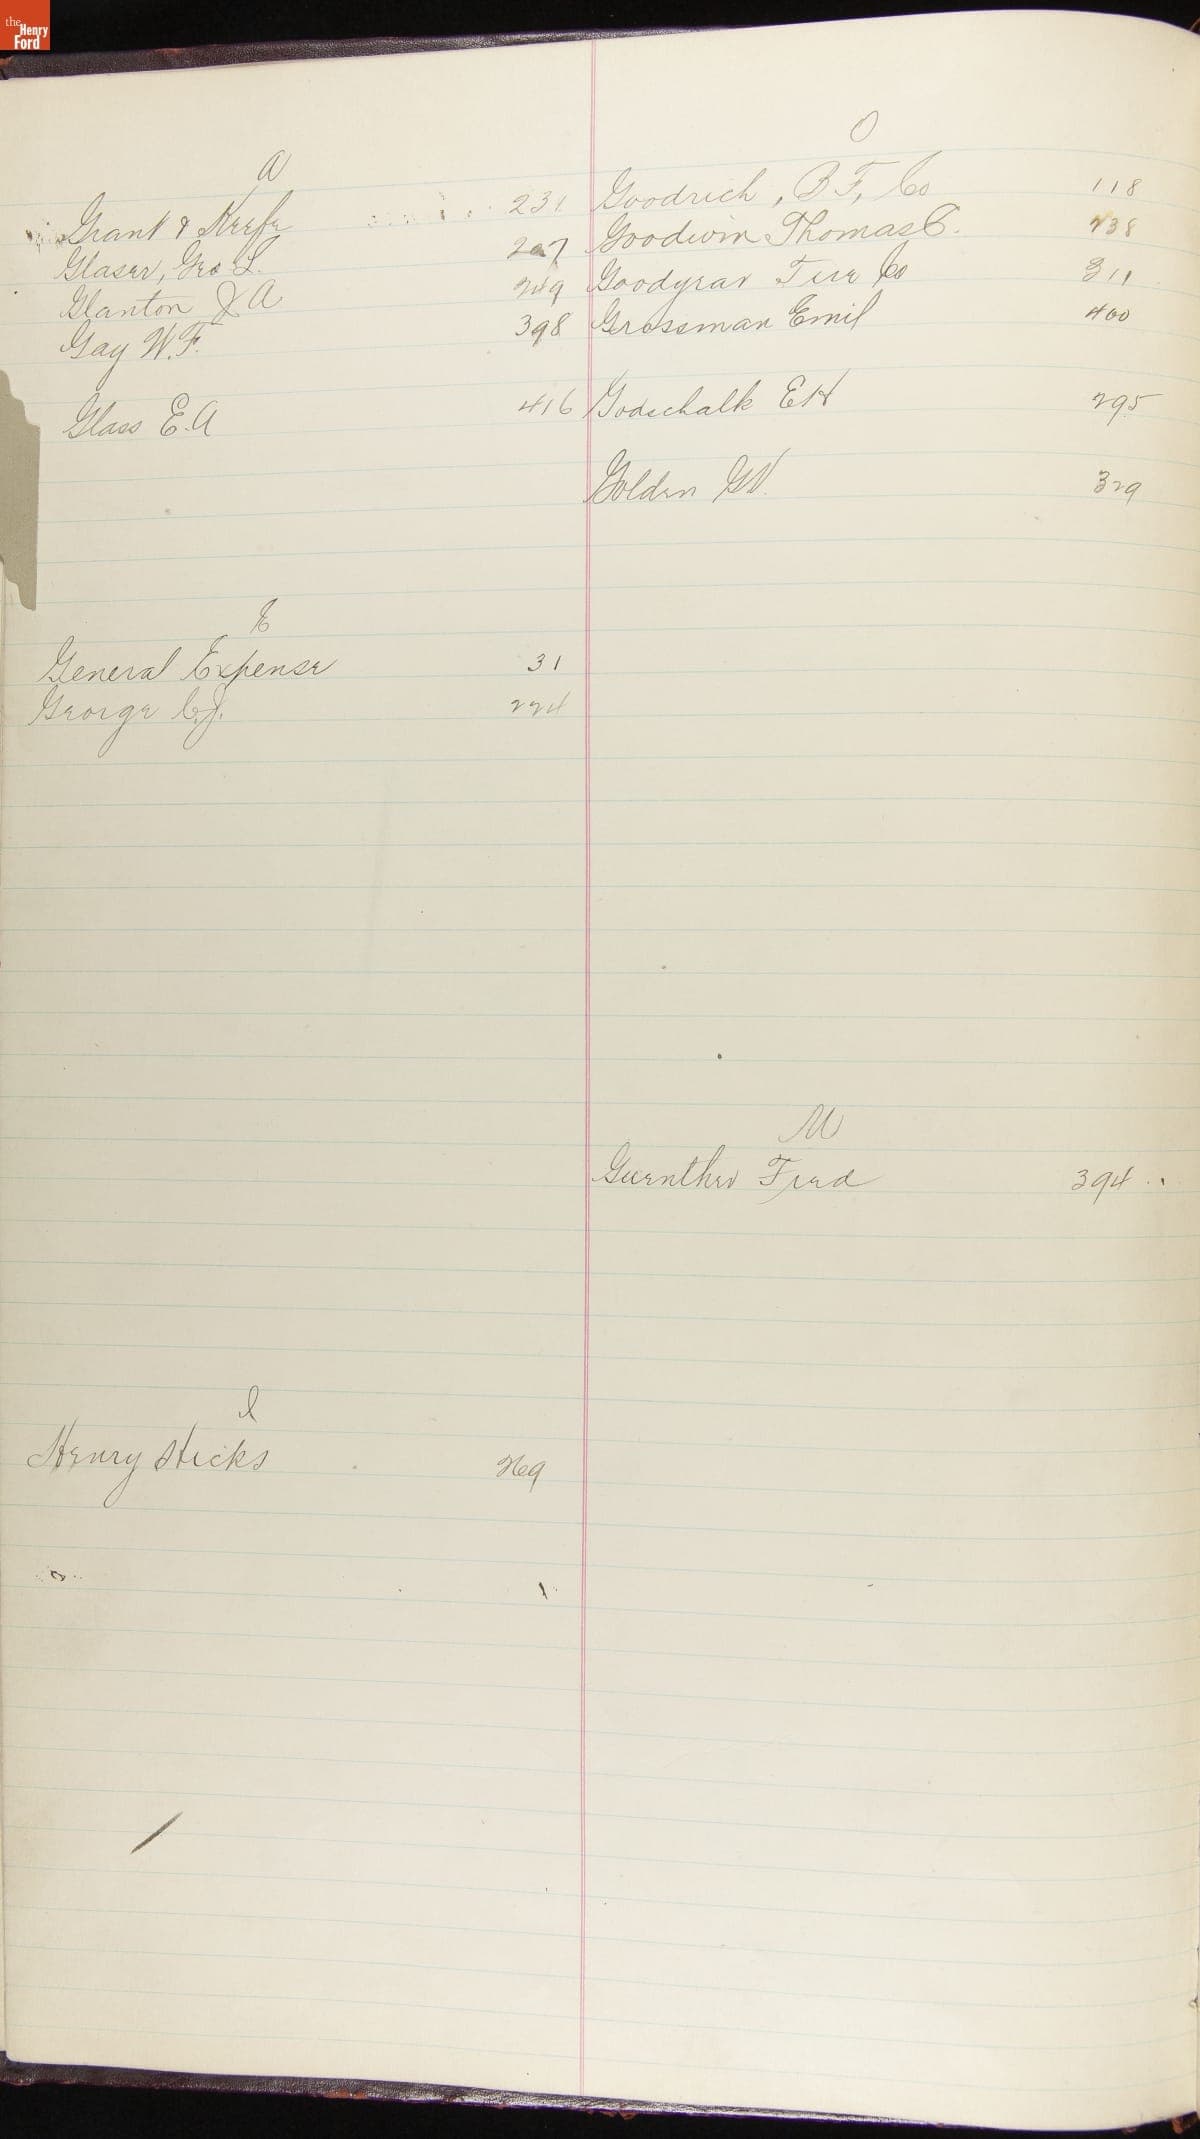 the
Henry
Ford
A
Grant & Keefe 231
Glaser, Geo L. 207
Glanton J A 249
Gay W.F. 398
Glass E.A 416
E
General Expense 31
George C.J. 224
I
Henry Hicks 269
O
Goodrich, B F, Co 118
Goodwin Thomas C. 238
Goodyear Tire Co 311
Grossman Emil 400
Godschalk E H 295
Golden GW. 329
Guenther Fred 394